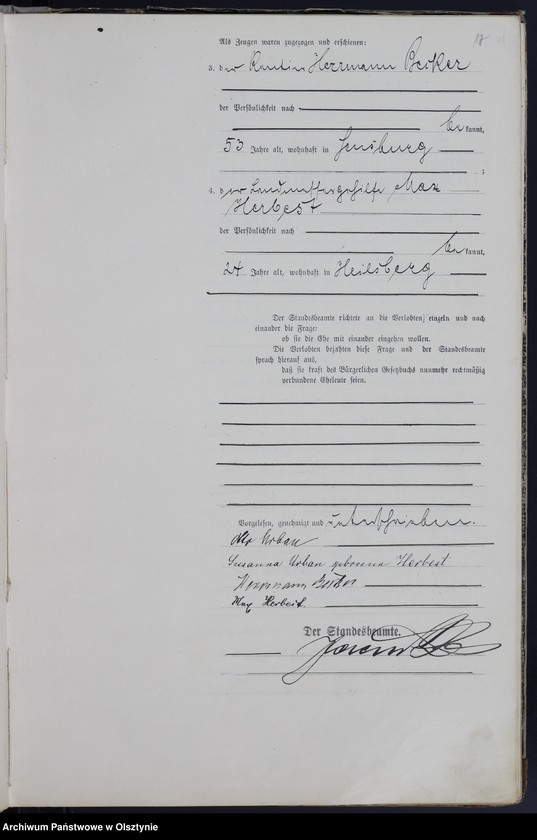 17
Als Zeugen waren zugezogen und erschienen:
3. der Rentier Herrmann Becker
der Persönlichkeit nach
be kannt,
53 Jahre alt, wohnhaft in Sensburg
;
4. der Landmessergehilfe Max
Herbest
der Persönlichkeit nach
be kannt,
24 Jahre alt, wohnhaft in Heilsberg
Der Standesbeamte richtete an die Verlobten einzeln und nach
einander die Frage:
ob sie die Ehe mit einander eingehen wollen.
Die Verlobten bejahten diese Frage und der Standesbeamte
sprach hierauf aus,
daß sie kraft des Bürgerlichen Gesetzbuchs nunmehr rechtmäßig
verbundene Eheleute seien.
Vorgelesen, genehmigt und unterschrieben.
Urban
Susanna Urban geborene Herbest
Herrmann Becker
Max Herbest.
Der Standesbeamte.
Archiwum Państwowe w Olsztynie